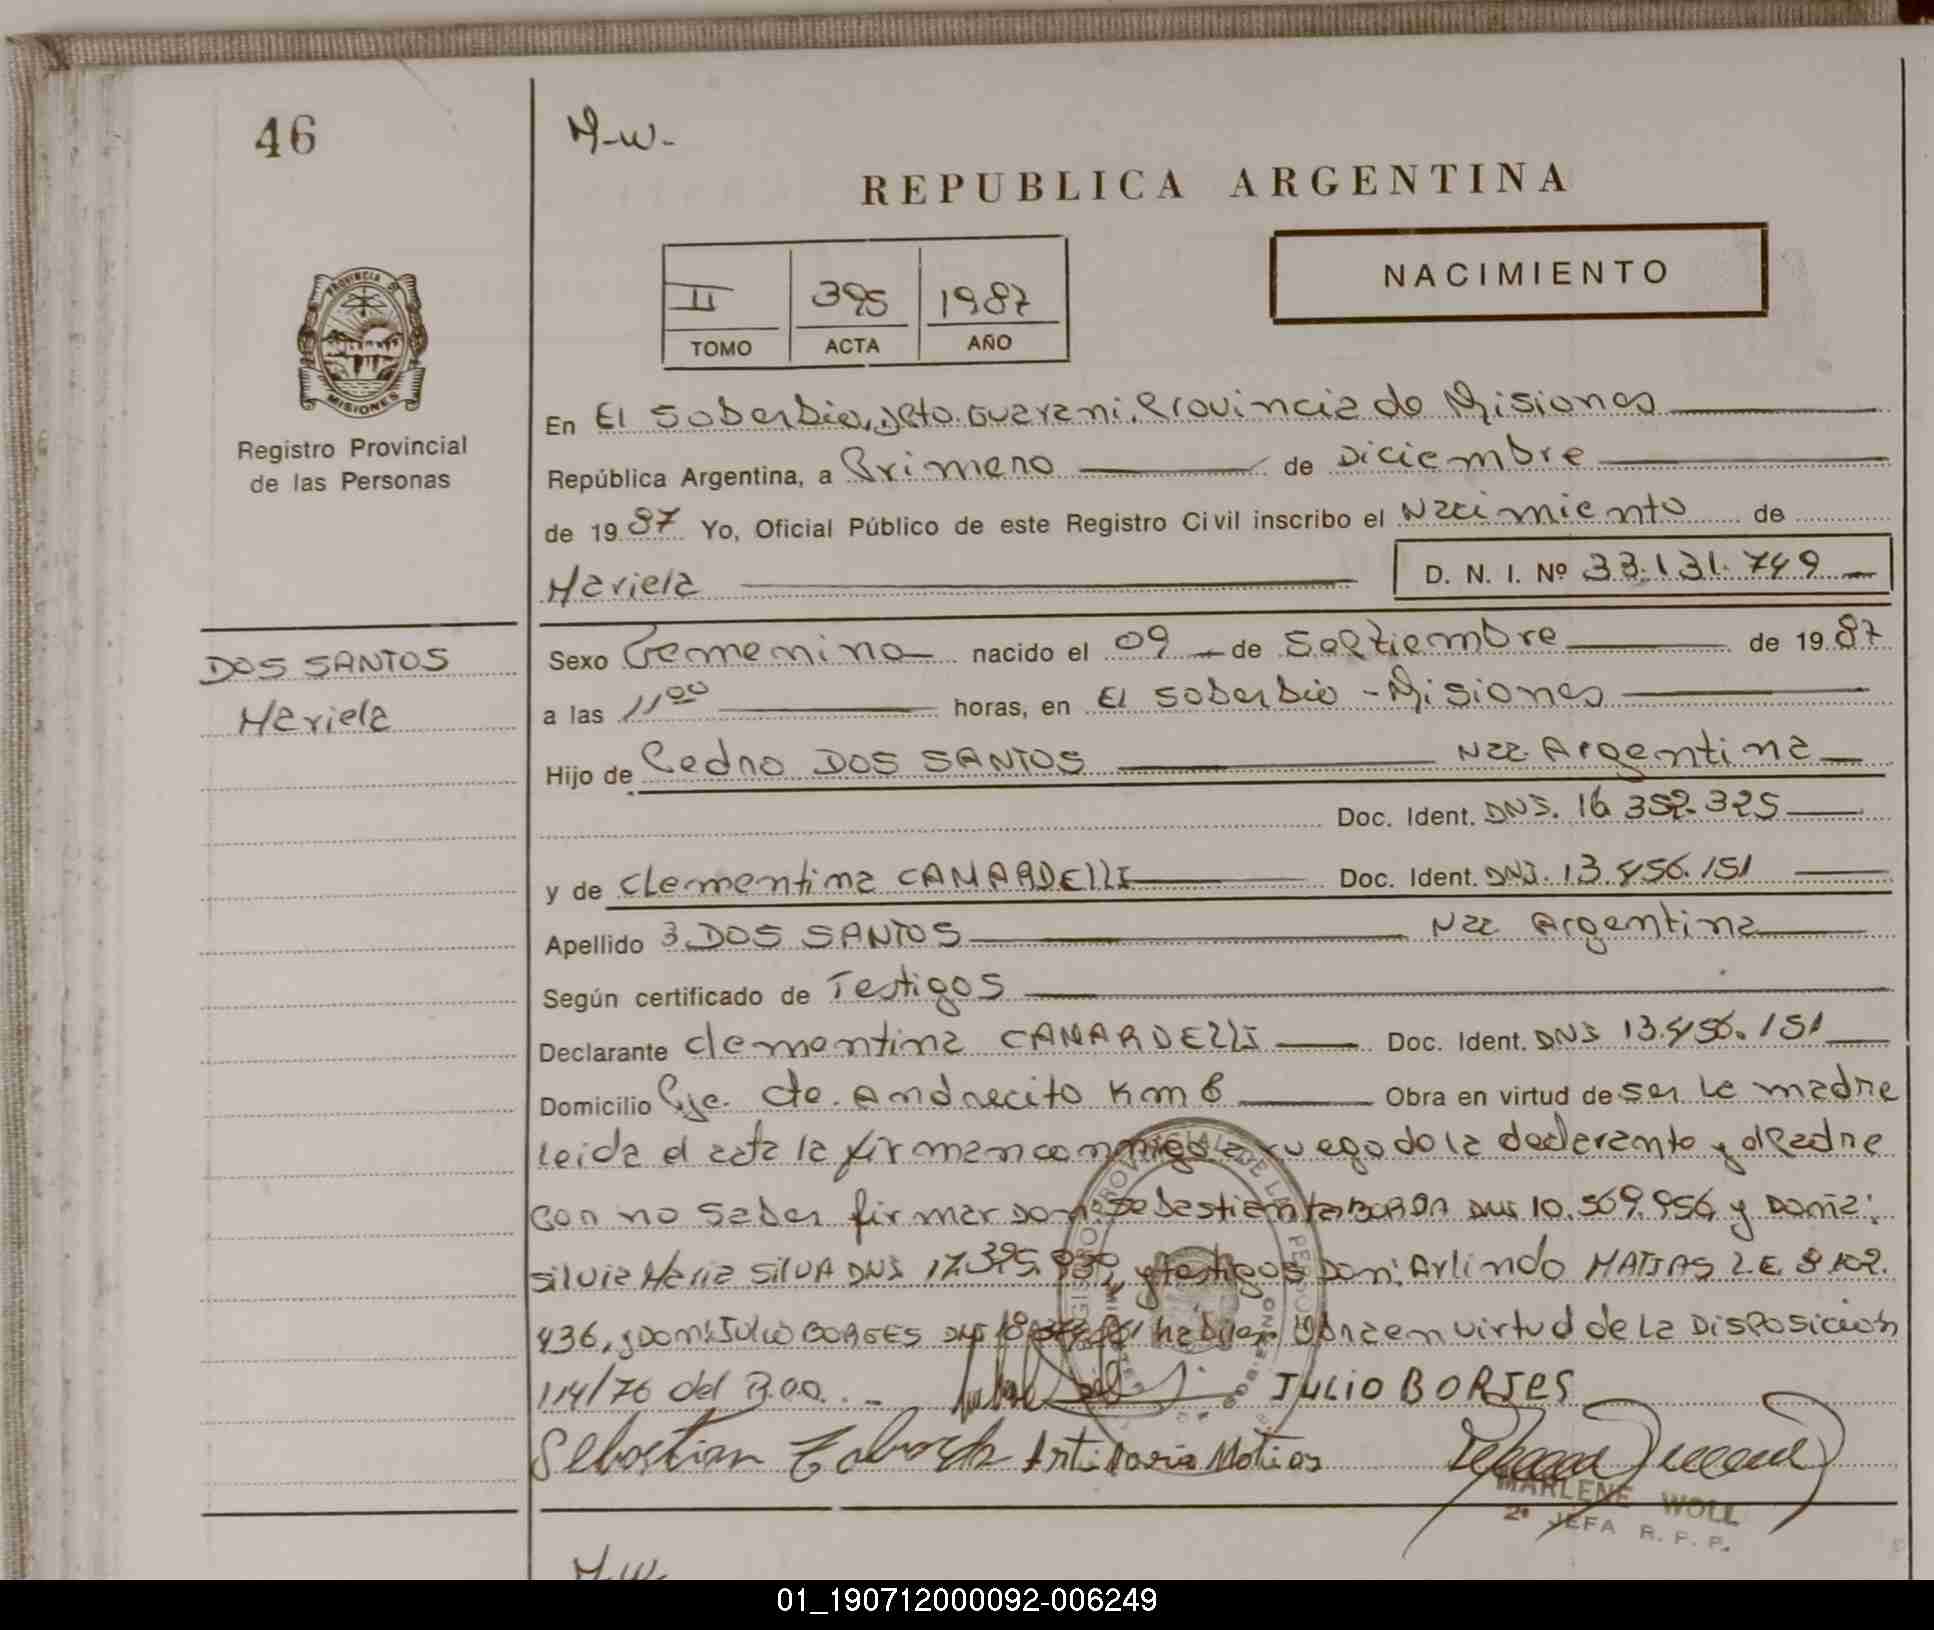 46
M-W-
REPUBLICA ARGENTINA
NACIMIENTO
II 395 1987
TOMO ACTA AÑO
PROVINCIA DE
MISIONES
Registro Provincial
de las Personas
En El Soberbio, Dto. Guarani, Provincia de Misiones
República Argentina, a Primero de Diciembre
de 1987 Yo, Oficial Público de este Registro Civil inscribo el Nacimiento de
Mariela D. N. I. Nº 33.131.749
DOS SANTOS
Mariela
Sexo Femenino nacido el 09 de Septiembre de 1987
a las 11 00 horas, en El Soberbio - Misiones
Hijo de Pedro DOS SANTOS Nac Argentina
Doc. Ident. DNI. 16 352.325
y de Clementina CAMARDELLI Doc. Ident. DNI. 13.456.151
Apellido DOS SANTOS Nac Argentina
Según certificado de Testigos
Declarante Clementina CAMARDELLI Doc. Ident. DNI 13.456.151
Domicilio Pje. Cte. Andrecito Km 6 Obra en virtud de ser la madre
leida el acta la firman conmigo a ruego de la declarante y el Padre
por no saber firmar Don: Sebastian TABORDA DNI 10.569.956 y Doña:
Silvia Maria SILVA DNI 17.395. y testigos Don: Arlindo MATIAS L.E. 8 102.
436, y Don: Julio BORGES DNI habiles Obra en virtud de la Disposicion
114/76 del
JULIO BORJES
Sebastian Taborda Matias
MARLENE WOLL
2ª JEFA R. P. P.
M.W.
01_190712000092-006249